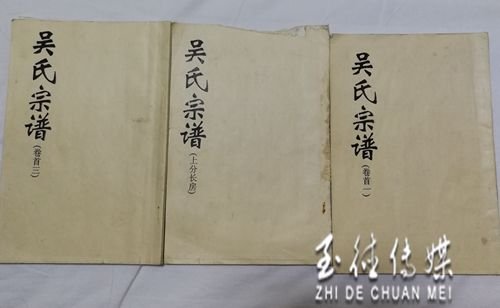 吴氏宗谱
(卷首三)
吴氏宗谱
(上分长房)
吴氏宗谱
(卷首一)
至德传媒
ZHI DE CHUAN MEI